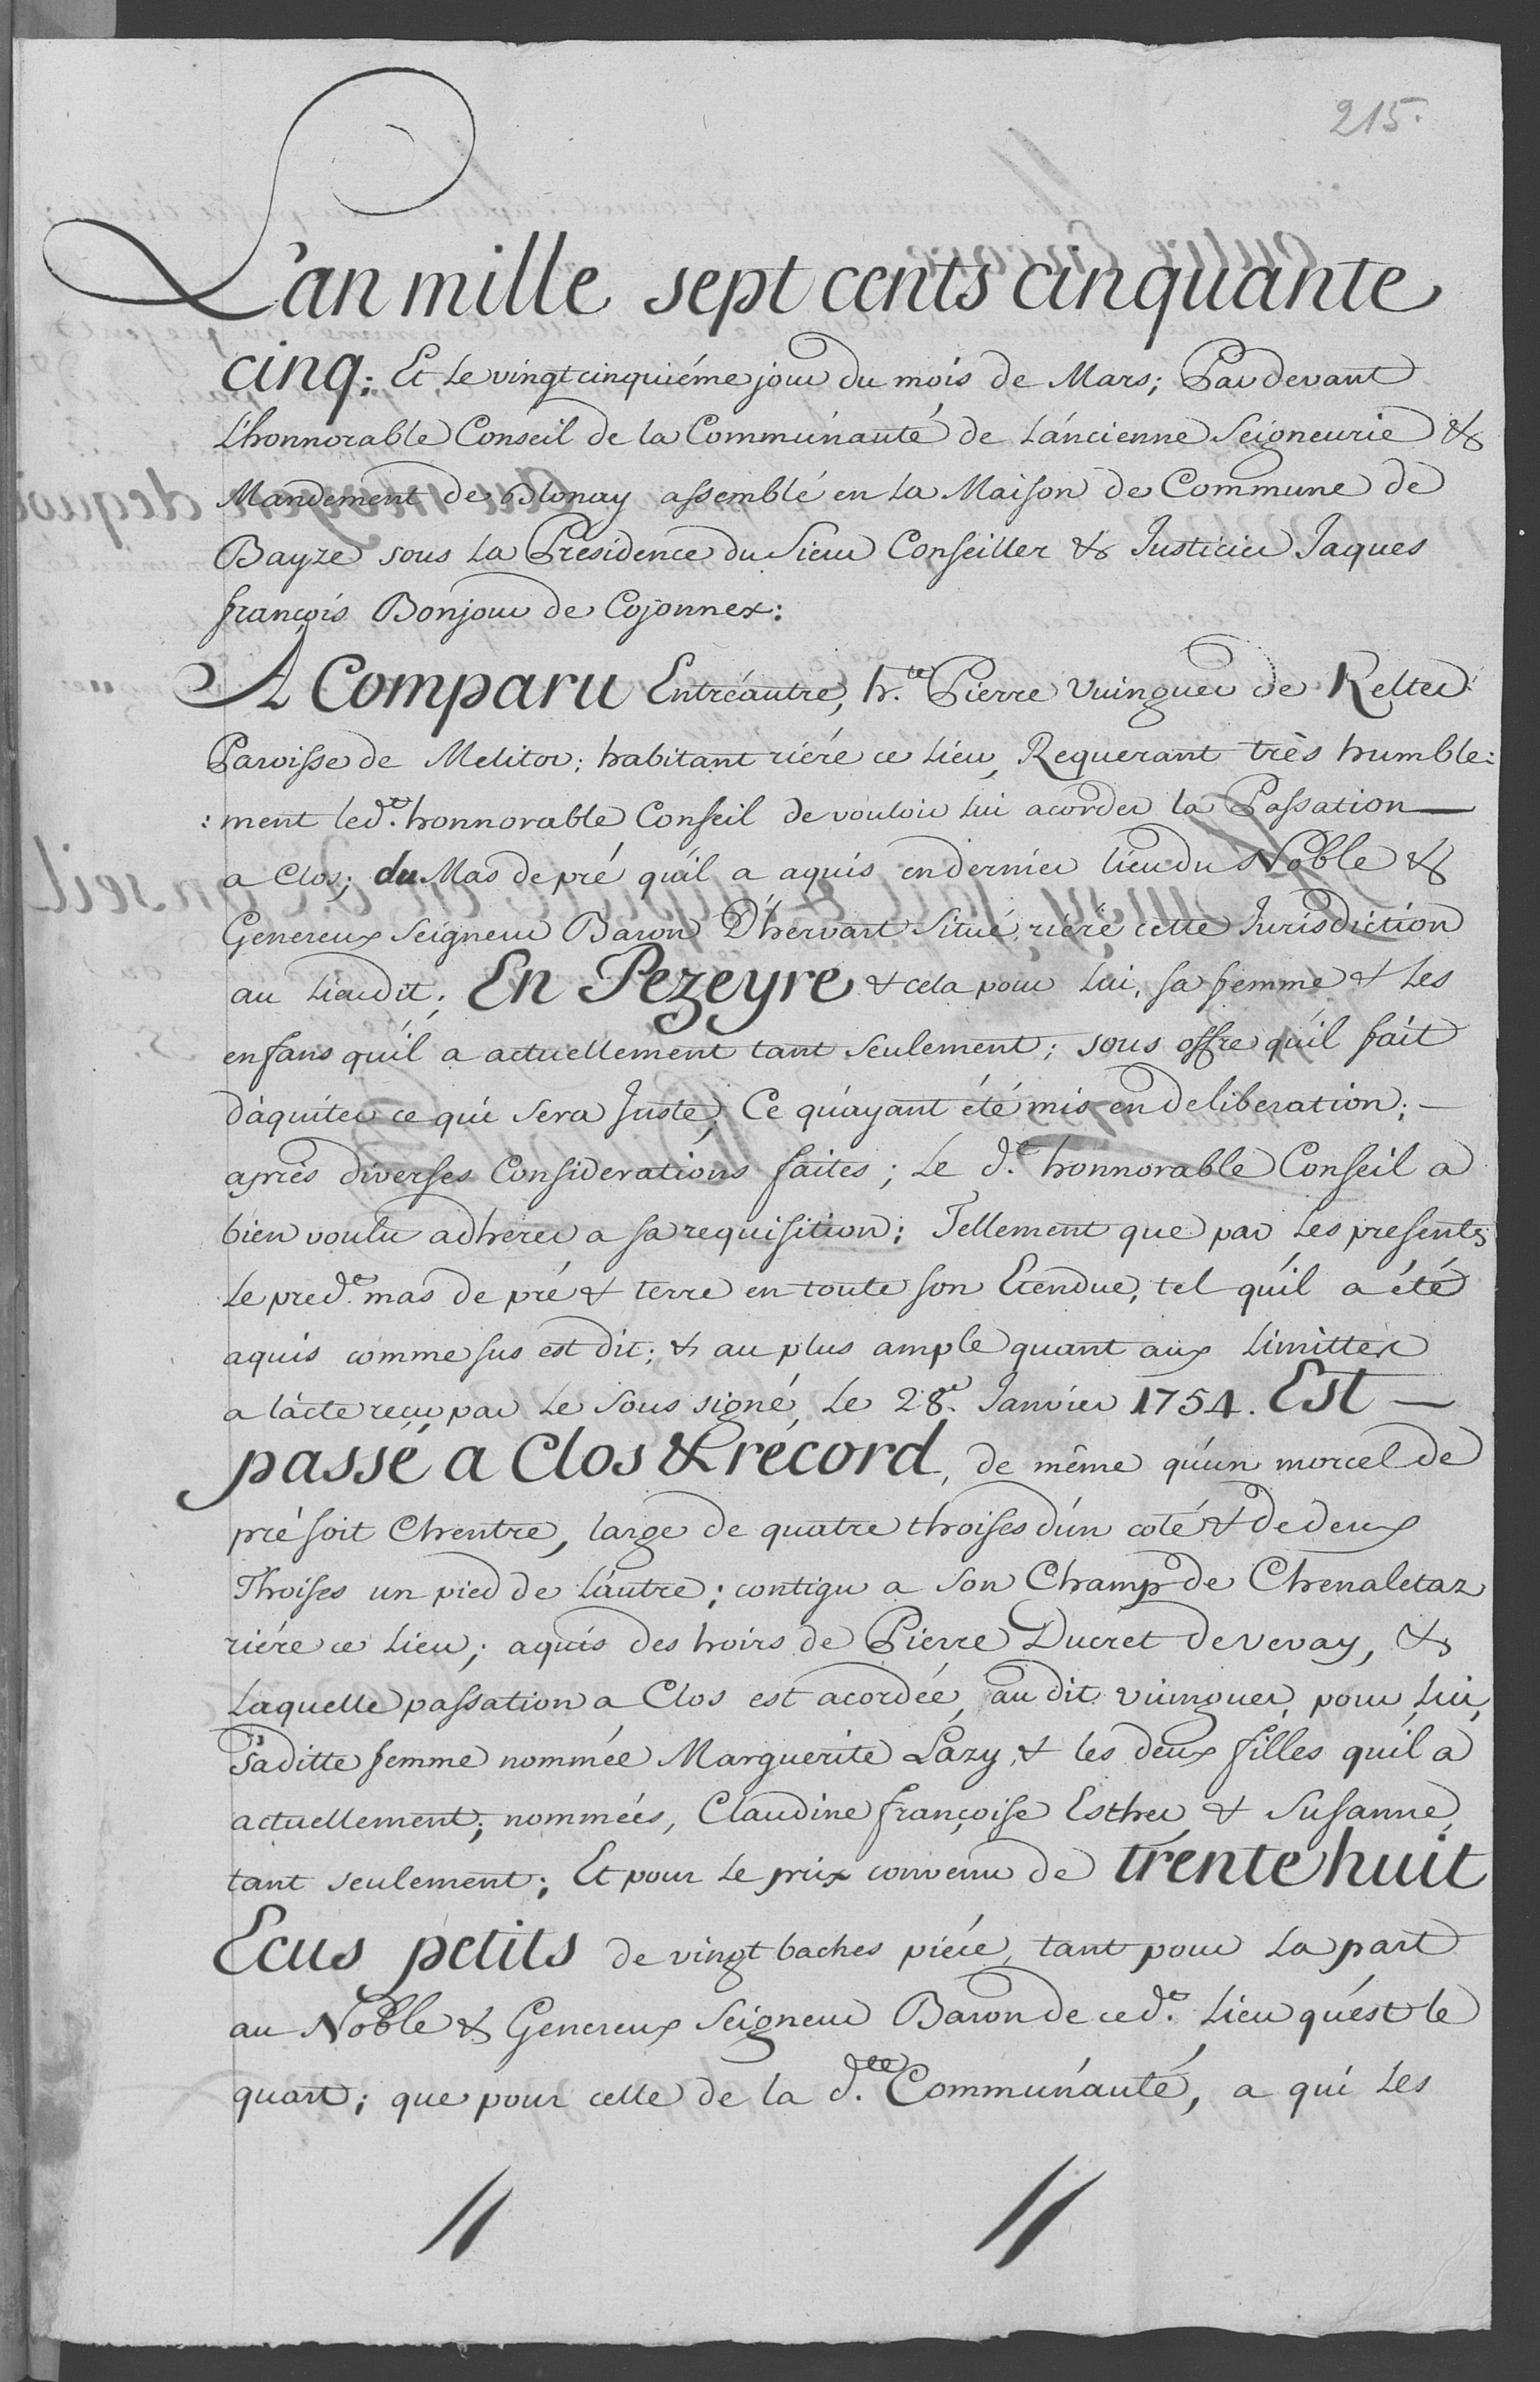 215.
L'an mille sept cents cinquante
cinq; Et le vingtcinquiéme jour du mois de Mars; Par devant
L'honnorable Conseil de la Communauté de L'ancienne Seigneurie &
Mandement de Blonay assemblé en la Maison de Commune de
Bayze sous la Présidence du Sieur Conseiller & Justicier Jaques
françois Bonjour de Cojonnex:
A Comparu Entréautre, h.te Pierre Vuinguer de Kelter
Paroisse de Melitor; habitant riére ce Lieu, Requerant très humble:
:ment led.t honnorable Conseil de vouloir lui acorder la Passation —
a Clos; du Mas de pré qu'il a aquis en dernier lieu du Noble &
Genereux Seigneur Baron D'hervart Situé riére cette Jurisdiction
au Lieudit; En Pezeyre & cela pour Lui, sa femme & Les
enfans qu'il a actuellement tant seulement; sous offre qu'il fait
d'aquiter ce qui sera Juste; Ce qu'ayant été mis en deliberation; —
aprés diverses Considerations faites; Le d.t honnorable Conseil a
bien voulu adherer a sa requisition; Tellement que par Les presentes
Le pred.t mas de pré & terre en toute son Etendue, tel qu'il a été
aquis comme sus est dit; & au plus ample quant aux Limittes
a l'acte reçu par Le sous signé, Le 28.e Janvier 1754. Est —
passé a Clos & récord, de même qu'un morcel de
pré soit Chentre, large de quatre thoises d'un coté & de deux
Thoises un pied de L'autre; contigu a son Champ de Chenaletaz
riére ce Lieu; aquis des hoirs de Pierre Ducret de vevay, &
Laquelle passation a Clos est acordée, au dit vuinguer, pour Lui,
saditte femme nommée Marguerite Lazy, & les deux filles qu'il a
actuellement; nommées, Claudine françoise Esther & Susanne,
tant seulement; Et pour Le prix convenu de trente huit
Ecus petits de vingt baches piéce, tant pour La part
au Noble & Genereux Seigneur Baron de ced.t Lieu qu'est le
quart; que pour celle de la d.tte Communauté, a qui Les